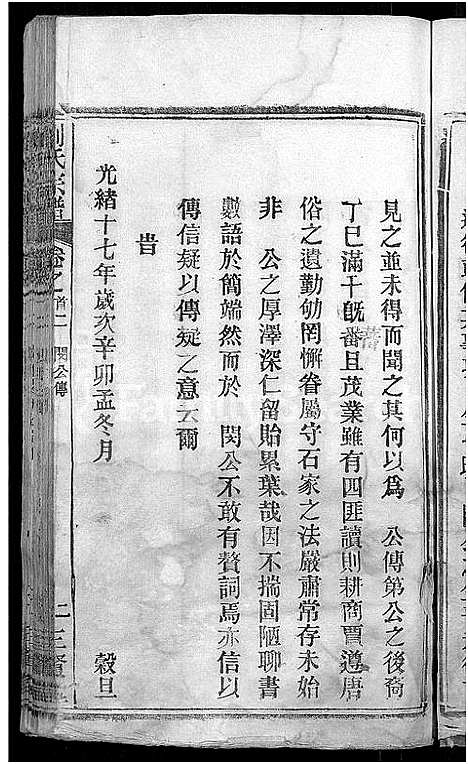 見之並未得而聞之其何以爲　公傳第公之後裔
丁巳滿千旣番且茂業雖有四匪讀則耕商賈遵唐
蕃
俗之遺勤劬罔懈眷屬守石家之法嚴肅常存未始
非　公之厚澤深仁留貽累葉哉因不揣固陋聊書
數語於簡端然而於　閔公不敢有贅詞焉亦信以
傳信疑以傳疑之意云爾
旹
光緒十七年歲次辛卯孟冬月　穀旦
劉氏宗譜　卷之首二　閔公傳　二　三